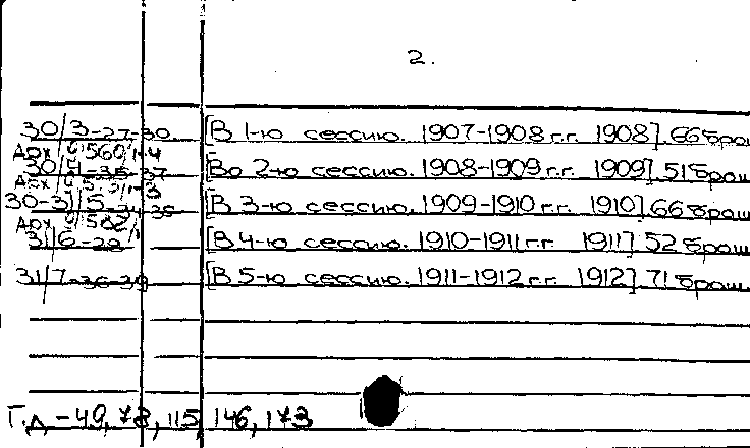 2.
30/3-27-30. [В 1-ю сессию. 1907-1908 г.г. 1908]. 66 брош
Арх 560/1-4
30/4-35-37 [Во 2-ю сессию. 1908-1909 г.г. 1909]. 51 брош
Арх
30-31/5 [В 3-ю сессию. 1909-1910 г.г. 1910] 66 брош
Арх
31/6-22 [В 4-ю сессию. 1910-1911 г.г 1911] 52 брош
31/7-36-39 [В 5-ю сессию. 1911-1912 г.г. 1912]. 71 брош
Г.Д - 49, 78, 115, 146, 173